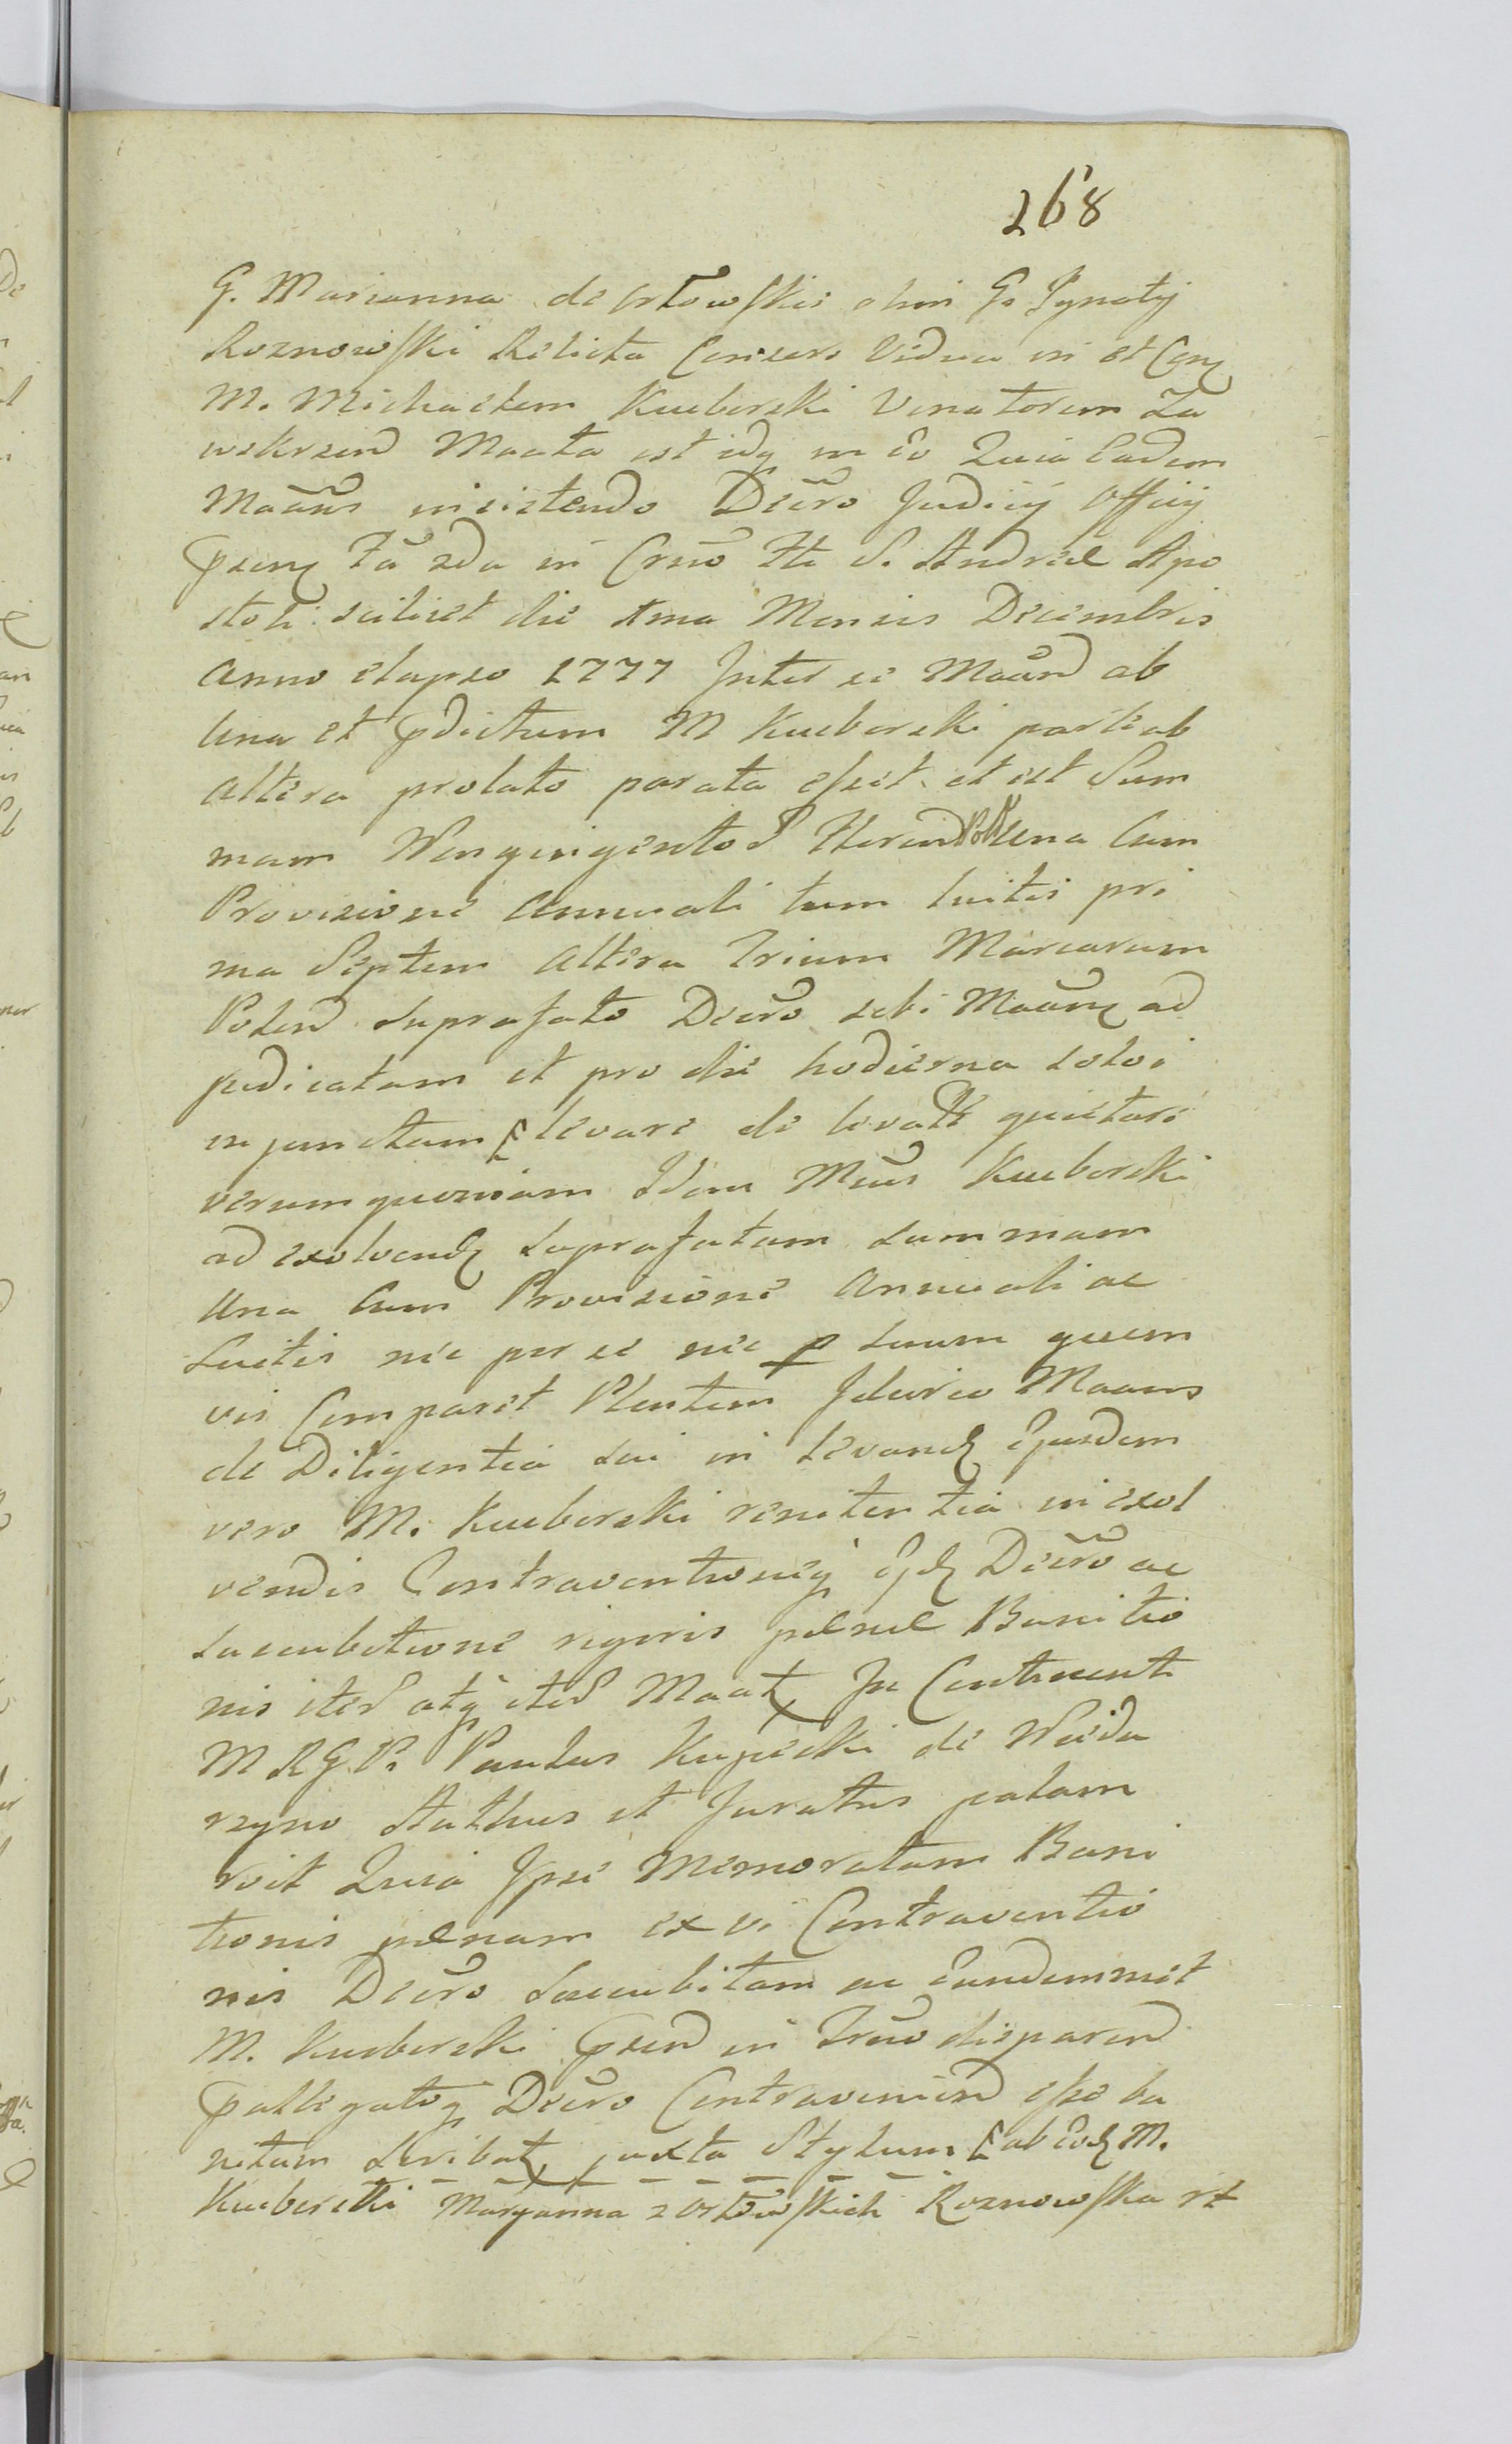 268
G. Marianna de Orłowskie olim G. Ignatij
Roznowski Relicta Consors Vidua in et Con
M. Michaelem Kueborski Venatorem Za
wskrzen Maãta est idq in eo Quia Eadem
Maãns insistendo Decro Judicij Officij
psen in Crmo S. Andreae Apo
stoli scilicet die 1ma Mensis Decembris
Anno elapso 1777 Inter se Maãn ab
Una et pdictum M Kueborski parte ab
altera prolato parata esset et est Sum
mam una Cum
Provisione Annuali tum luitis pri
ma Septem altera Trium Marcarum
Polon suprafato Decro sibi Maãn ad
judicatam et pro die hodierna solvi
injunctam levare de levatis quietare
verum quoniam Idem Mcus Kueborski
ad exolvend suprafatam summam
Una Cum Provisione Annuali ac
Luitis nec per se nec p suum quem
vis Comparet Plentem Ideirco Maans
de Diligentia sui in levand Ejusdem
vero M. Kueborski renitentia in exol
vendis Contraventioneq Decro ac
succubitione rigoris pænæ Banitio
nis ited atq ited Maat In Continenti
M R G P. Paulus Kupecki de
regno Stathus et Juratus palam
Quia Ipse Memoratam Bani
tionis pænam ex vi Contraventio
nis Decro Succubitam ac Eundemmet
M. Kueborski psen in Trmo disparen
pallegatoq Decro Contravenien esse ba
nitum scribat juxta Stylum ab Eod M.
Kueborski Maryanna z Orłowskich Roznowska